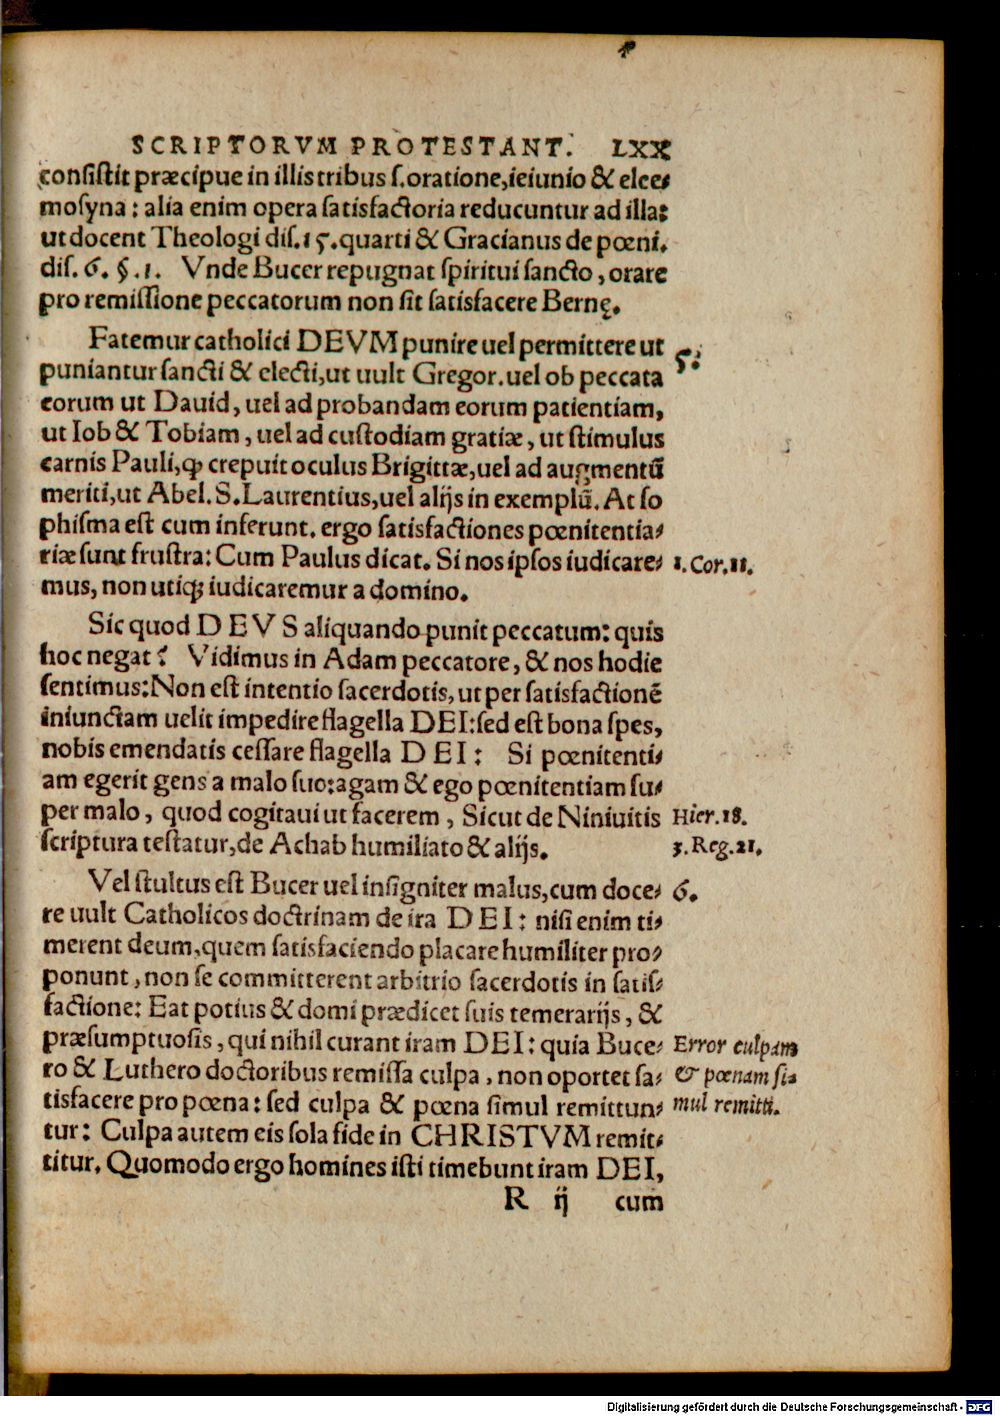 SCRIPTORVM PROTESTANT. LXX
consistit præcipue in illis tribus s. oratione, ieiunio & elee⸗
mosyna: alia enim opera satisfactoria reducuntur ad illa:
ut docent Theologi dis. 15. quarti & Gracianus de pœni.
dis. 6. §. 1. Vnde Bucer repugnat spiritui sancto, orare
pro remissione peccatorum non sit satisfacere Bernę.
Fatemur catholici DEVM punire uel permittere ut
5.
puniantur sancti & electi, ut uult Gregor. uel ob peccata
eorum ut Dauid, uel ad probandam eorum patientiam,
ut Iob & Tobiam, uel ad custodiam gratiæ, ut stimulus
carnis Pauli, ꝙ crepuit oculus Brigittæ, uel ad augmentũ
meriti, ut Abel. S. Laurentius, uel alijs in exemplũ. At so
phisma est cum inferunt. ergo satisfactiones pœnitentia⸗
riæ sunt frustra: Cum Paulus dicat. Si nos ipsos iudicare⸗
1. Cor. 11.
mus, non utiqꝫ iudicaremur a domino.
Sic quod DEVS aliquando punit peccatum: quis
hoc negat? Vidimus in Adam peccatore, & nos hodie
sentimus: Non est intentio sacerdotis, ut per satisfactionẽ
iniunctam uelit impedire flagella DEI: sed est bona spes,
nobis emendatis cessare flagella DEI: Si pœnitenti⸗
am egerit gens a malo suo: agam & ego pœnitentiam su⸗
per malo, quod cogitaui ut facerem, Sicut de Niniuitis
Hier. 18.
scriptura testatur, de Achab humiliato & alijs.
3. Reg. 21.
Vel stultus est Bucer uel insigniter malus, cum doce⸗
6.
re uult Catholicos doctrinam de ira DEI: nisi enim ti⸗
merent deum, quem satisfaciendo placare humiliter pro⸗
ponunt, non se committerent arbitrio sacerdotis in satis⸗
factione: Eat potius & domi prædicet suis temerarijs, &
præsumptuosis, qui nihil curant iram DEI: quia Buce⸗
Error culpam
ro & Luthero doctoribus remissa culpa, non oportet sa⸗
& pœnam si⸗
tisfacere pro pœna: sed culpa & pœna simul remittun⸗
mul remitti.
tur: Culpa autem eis sola fide in CHRISTVM remit⸗
titur. Quomodo ergo homines isti timebunt iram DEI,
R ij cum
Digitalisierung gefördert durch die Deutsche Forschungsgemeinschaft - DFG